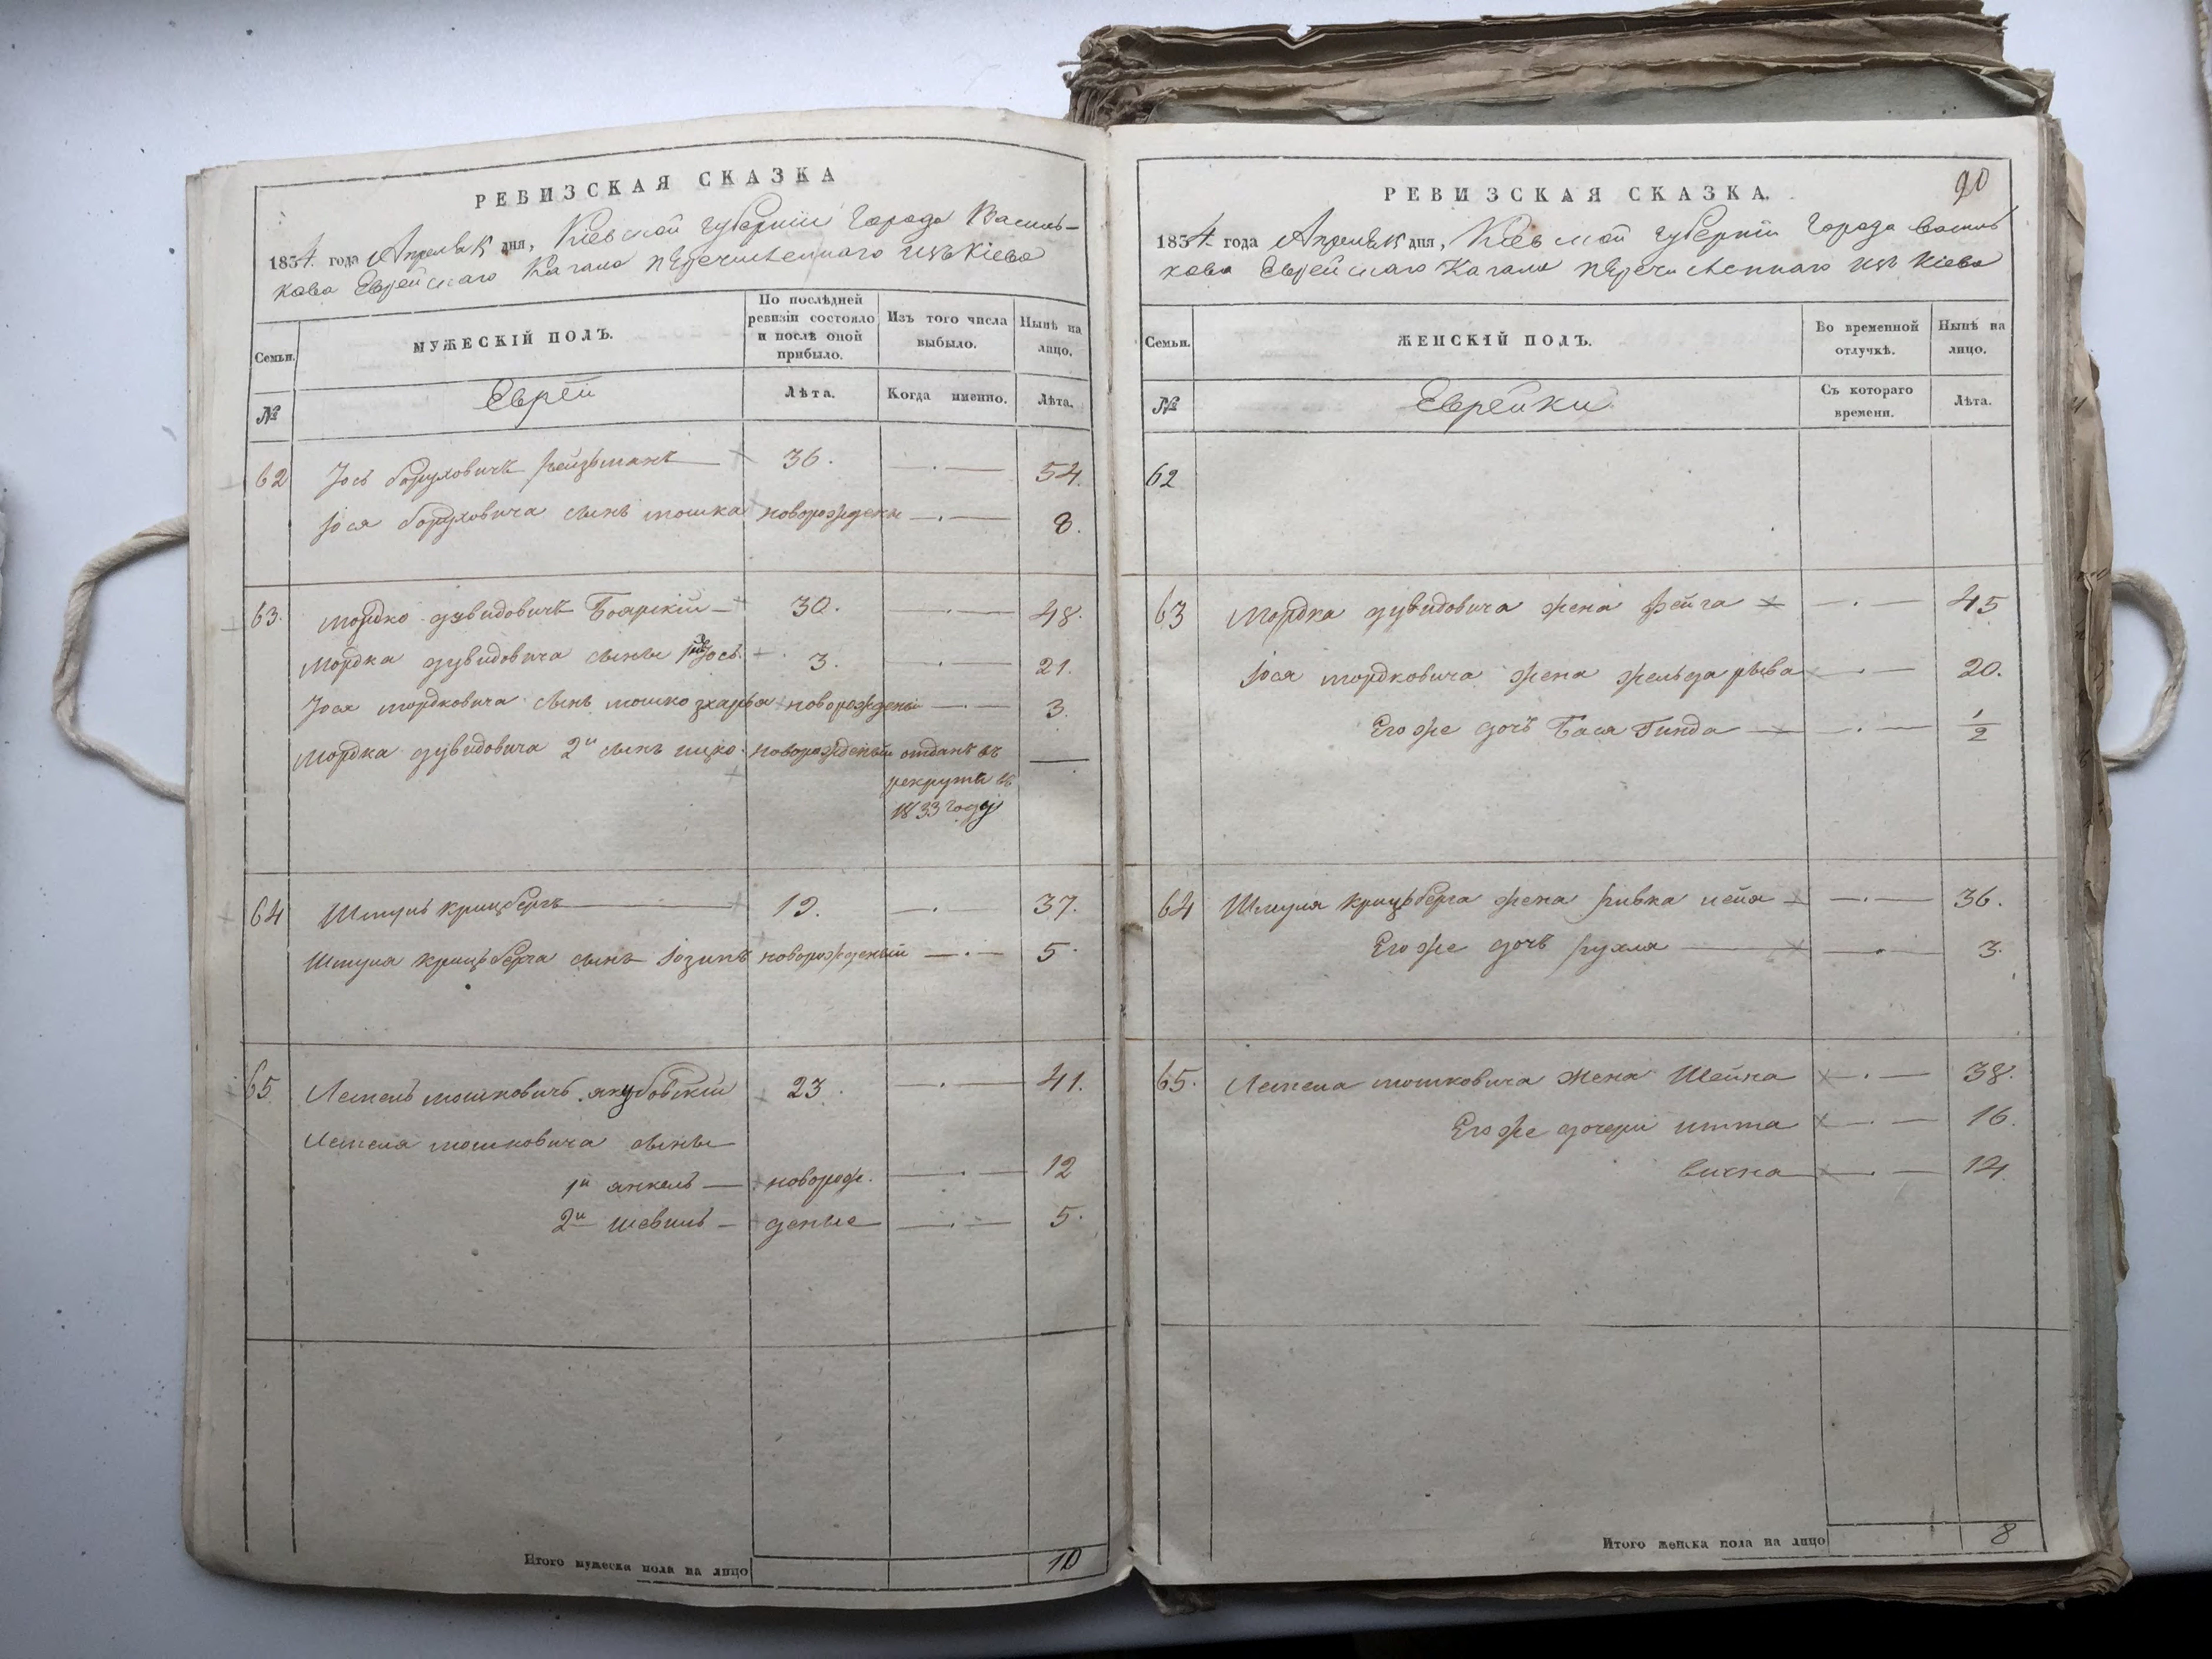 РЕВИЗСКАЯ СКАЗКА
1834 года Апреля 15 дня, Кіевской губерніи города Василь-
кова Еврейскаго Кагала перечисленнаго изъ Кіева
Семьи. МУЖЕСКІЙ ПОЛЪ. По послѣдней ревизіи состояло и послѣ оной прибыло. Изъ того числа выбыло. Нынѣ на лицо.
№ Еврѣи Лѣта. Когда именно. Лѣта.
62 Іось Боруховичъ 36. 54.
Іося Боруховича сынъ мошка новорожденъ 8.
63. Мордко дувидовичъ Боярскій 30. 48.
Мордка дувидовича сыны Іось 3. 21.
Іося мордковича сынъ мошко новорожденый 3.
Мордка дувидовича 2й сынъ ицко новорожденый отданъ въ
рекруты въ
1833 году
64 Шмуль крицбергъ 19. 37.
Шмуля крицберга сынъ новорожденый 5.
65. Лейзель мошковичъ якубовскій 23. 41.
мошковича сыны
1й янкель новорож. 12
2й деные 5.
Итого мужеска пола на лицо 10
РЕВИЗСКАЯ СКАЗКА. 90
1834 года Апреля 15 дня, Кіевской губерніи города Василь
кова Еврейскаго Кагала перечисленнаго изъ Кіева
Семьи. ЖЕНСКІЙ ПОЛЪ. Во временной отлучкѣ. Нынѣ на лицо.
№ Еврейки Съ котораго времени. Лѣта.
62
63 Мордка дувидовича жена фейга 45
Іося мордковича жена рыва 20.
Его же дочь Бася Гинда 1/2
64 Шмуля крицберга жена ривка нейя 36.
Его же дочь рухля 3.
65. мошковича жена Шейна 38.
Его же дочери итта 16.
14.
Итого женска пола на лицо 8